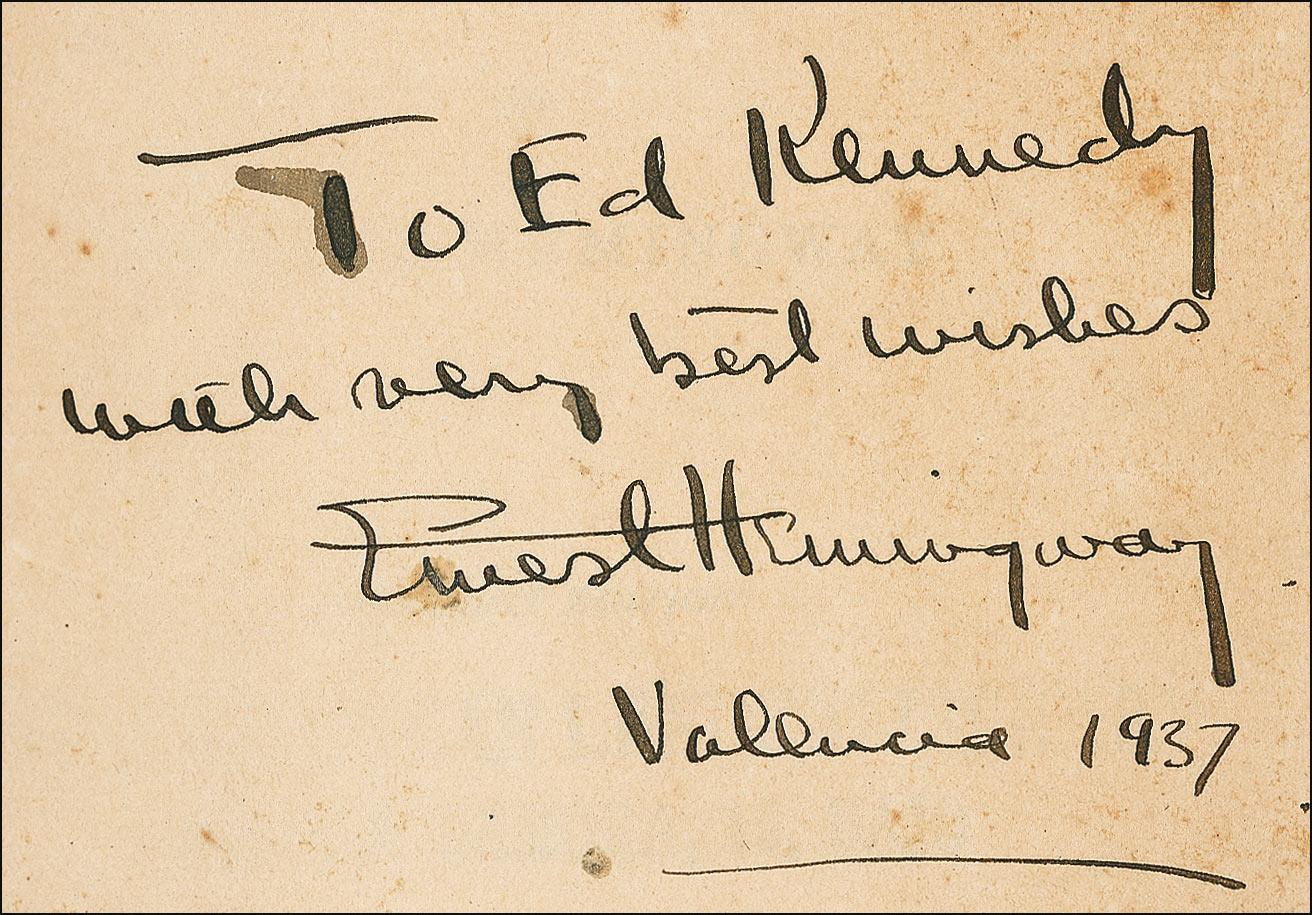 To Ed Kennedy
with very best wishes
Ernest Hemingway
Valencia 1937